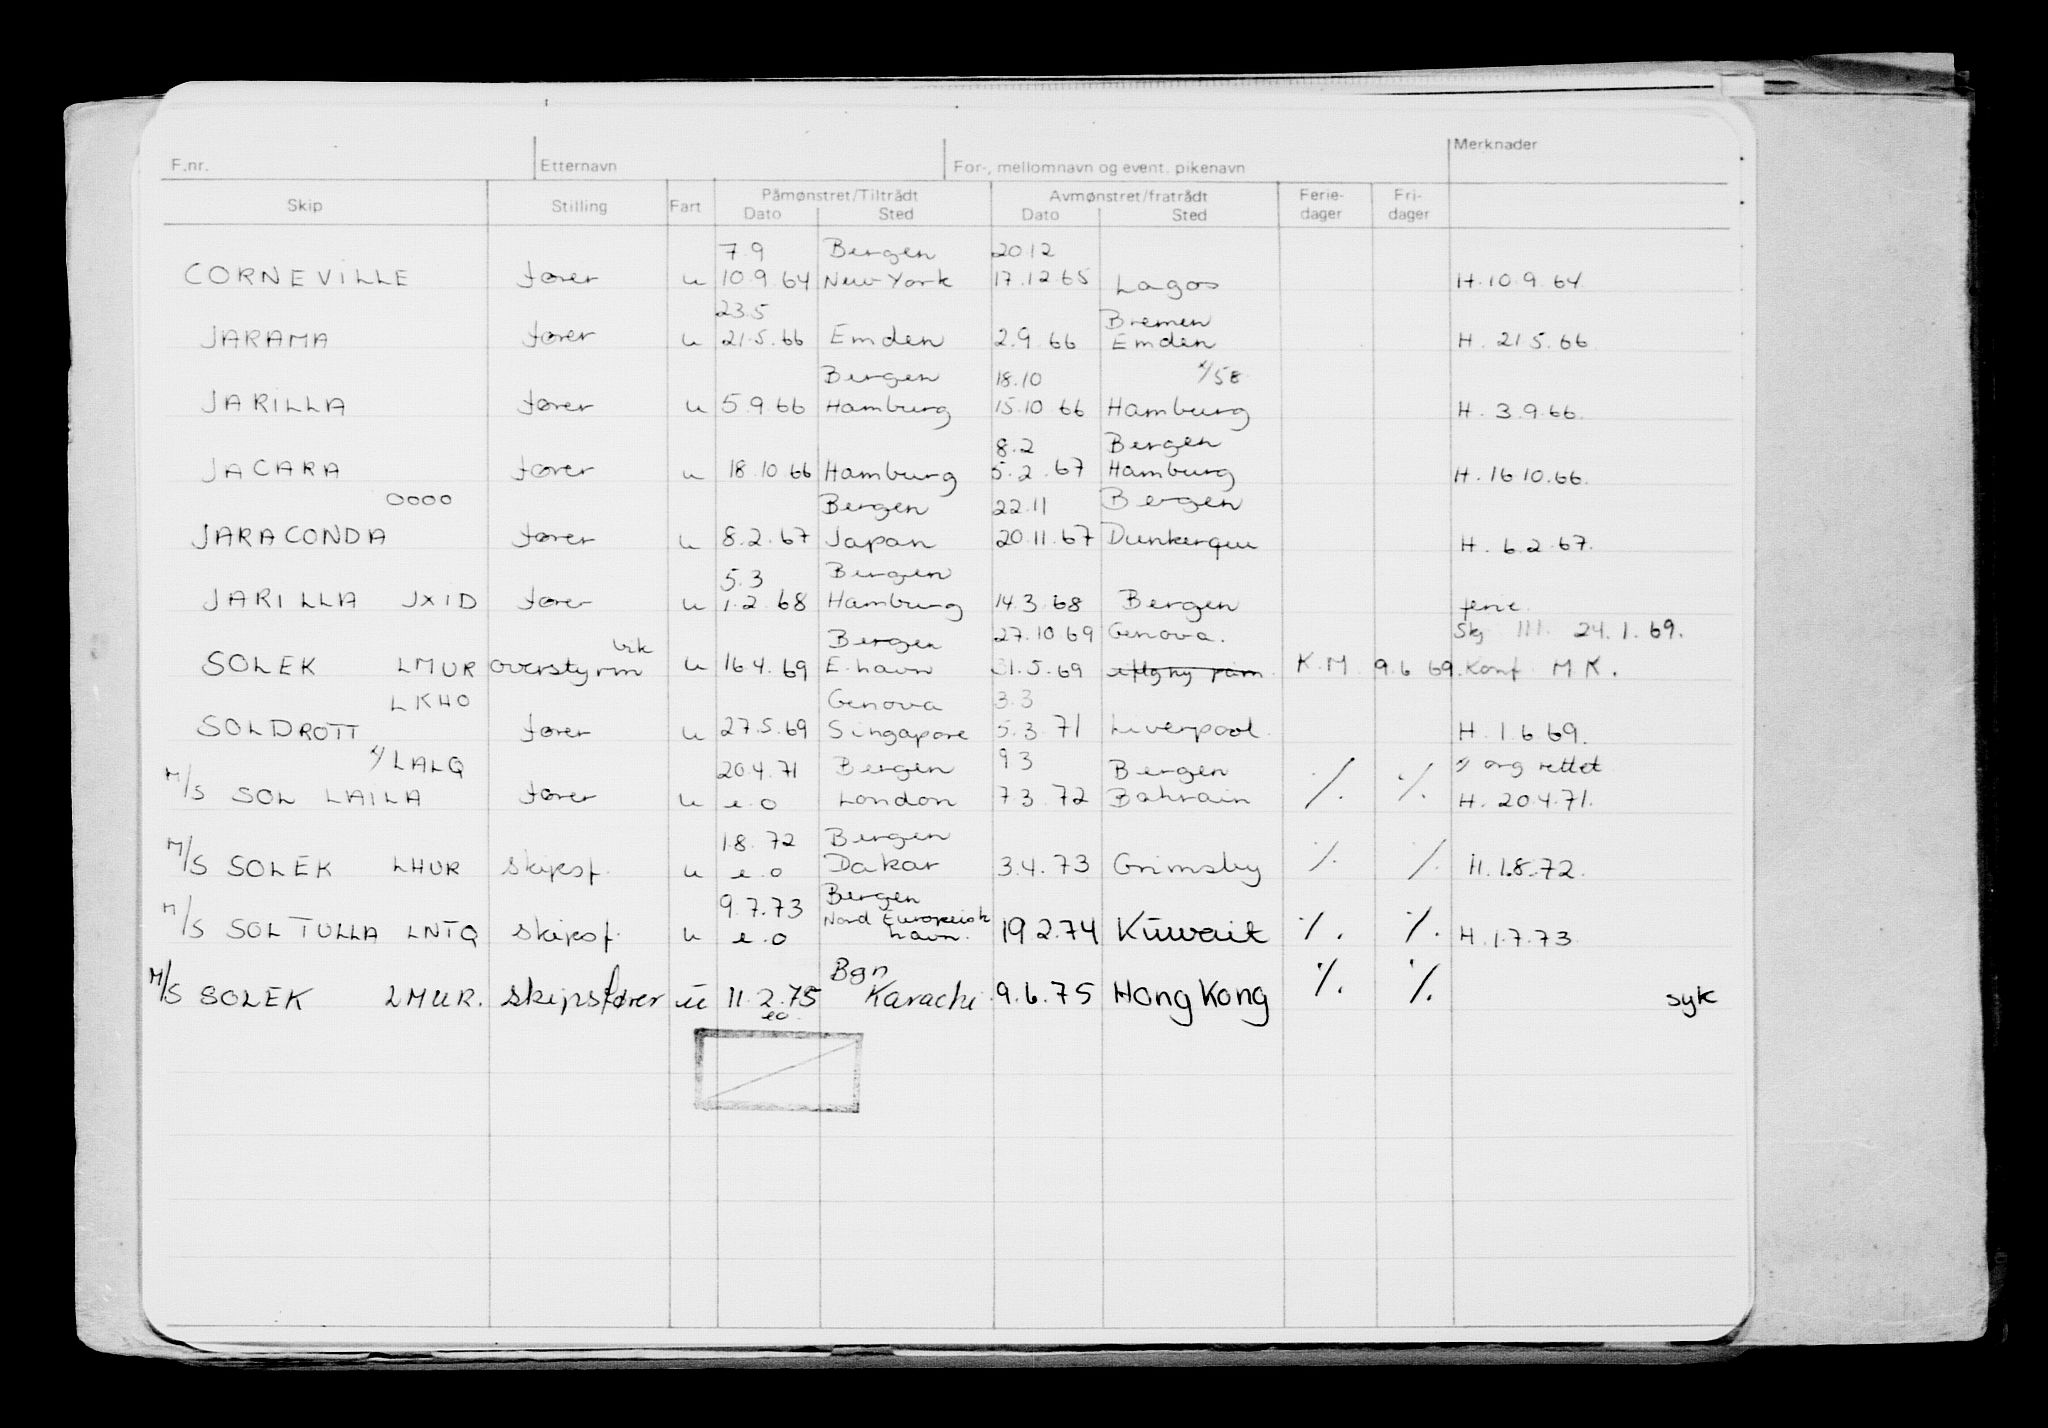 F.nr. Etternavn For-, mellomnavn og event. pikenavn Merknader
Skip Stilling Fart Påmønstret/Tiltrådt Dato Sted Avmønstret/fratrådt Dato Sted Ferie-dager Fri-dager
7.9 Bergen 20 12
CORNEVILLE fører u 10.9.64 New York 17.12.65 Lagos H.10.9.64
23.5 Bremen
JARAMA fører u 21.5.66 Emden 2.9.66 Emden H. 21.5.66
Bergen 18.10 x/58
JARILLA fører u 5.9.66 Hamburg 15.10 66 Hamburg H. 3.9.66
8.2 Bergen
JACARA fører u 18.10 66 Hamburg 5.2.67 Hamburg H.16.10.66.
OOOO Bergen 22.11 Bergen
JARACONDA fører u 8.2.67 Japan 20.11.67 Dunkerque H. 6.2.67.
5.3 Bergen
JARILLA JXID fører u 1.2.68 Hamburg 14.3.68 Bergen ferie.
vik Bergen 27.10 69 Genova. Skj III 24.1.69.
SOLEK LMUR overstyrm u 16.4.69 E.havn 31.5.69 K.M. 9.6 69. Konf MK.
LKHO Genova 3.3
SOLDROTT fører u 27.5.69 Singapore 5.3.71 Liverpool. H.1.6.69.
x/ LALQ 20.4.71 Bergen 9.3 Bergen x/ org rettet
M/S SOL LAILA fører u e.o London 7.3.72 Bahrain ·/. ·/. H. 20.4.71.
1.8.72 Bergen
M/S SOLEK LHUR skipsf. u e.o Dakar 3.4.73 Grimsby ·/. ·/. H.1.8.72.
9.7.73 Bergen
M/S SOL TULLA LNTQ skipsf. u e.o Nord Europeisk havn. 19 2.74 Kuwait ·/. ·/. H.1.7.73
Bgn
M/S SOLEK LMUR. skipsfører u 11.2.75 Karachi 9.6.75 Hong Kong ·/. ·/. syk
eo.